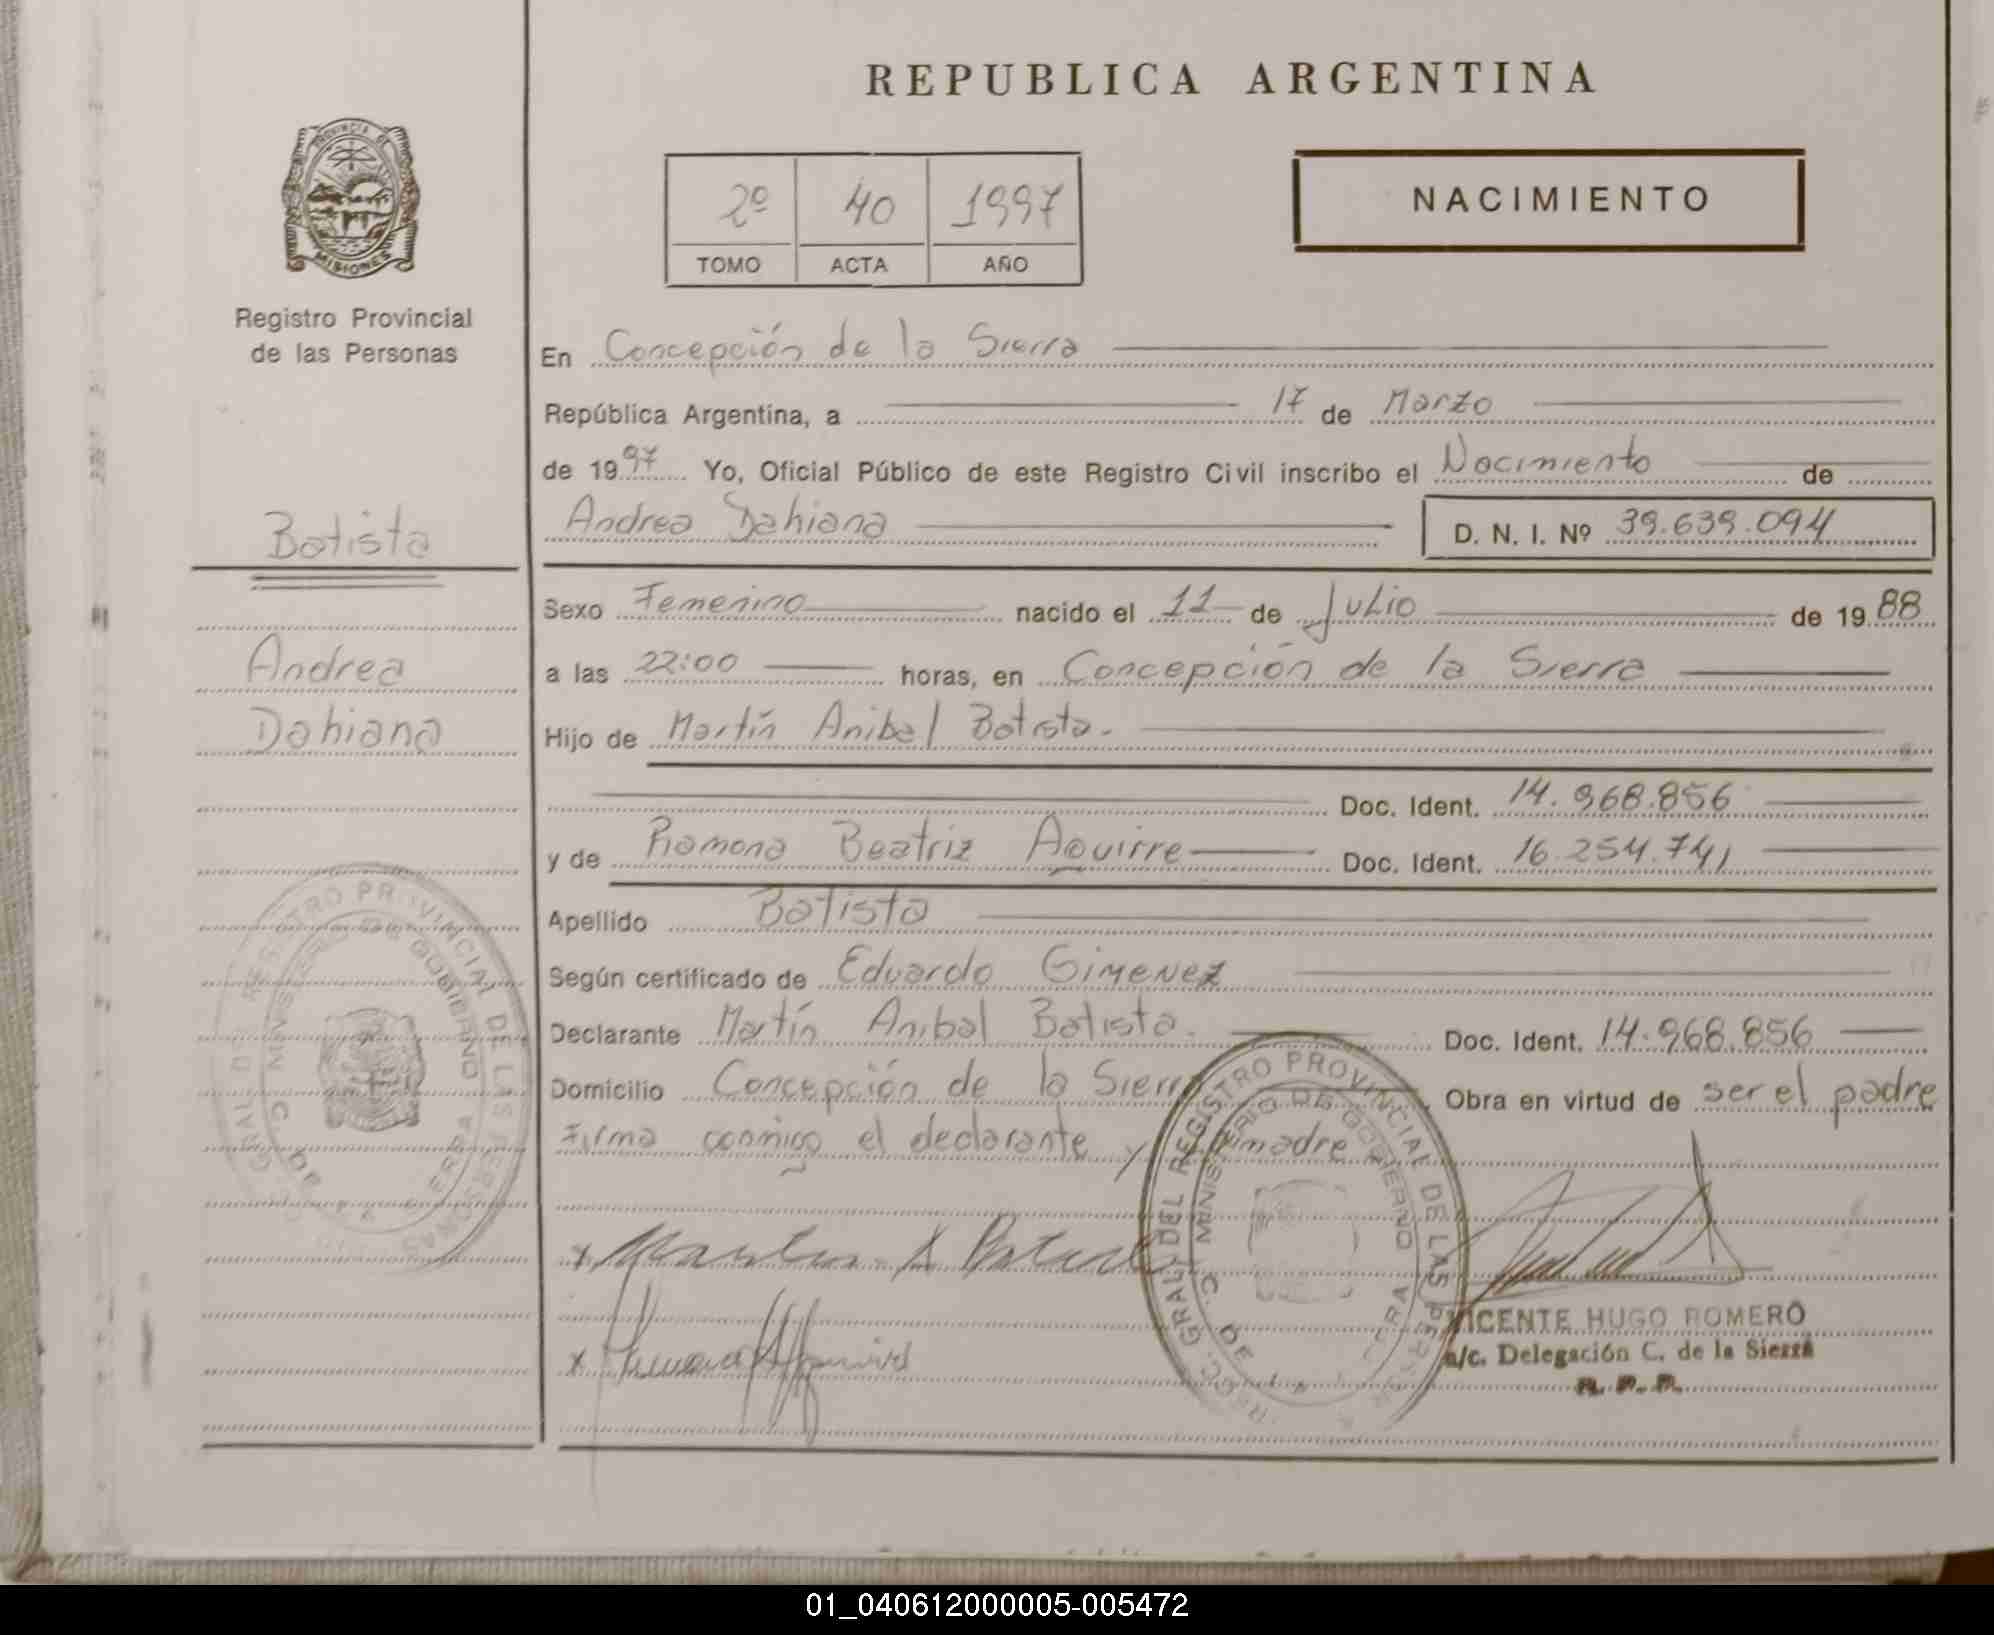 REPUBLICA ARGENTINA
PROVINCIA DE
MISIONES
Registro Provincial
de las Personas
2º 40 1997
TOMO ACTA AÑO
NACIMIENTO
En Concepción de la Sierra
República Argentina, a 17 de Marzo
de 1997 Yo, Oficial Público de este Registro Civil inscribo el Nacimiento de
Andrea Dahiana D. N. I. Nº 39.639.094
Batista
Andrea
Dahiana
Sexo Femenino nacido el 11 de Julio de 1988
a las 22:00 horas, en Concepción de la Sierra
Hijo de Martín Anibal Batista.
Doc. Ident. 14.968.856
y de Ramona Beatriz Aguirre Doc. Ident. 16.254.741
Apellido Batista
Según certificado de Eduardo Gimenez
Declarante Martín Anibal Batista. Doc. Ident. 14.968.856
Domicilio Concepción de la Sierra Obra en virtud de ser el padre
Firma conmigo el declarante y la madre
REGISTRO PROVINCIAL DE LAS PERSONAS
MINISTERIO DE GOBIERNO
GRAL. DEL REGISTRO PROVINCIAL DE LAS PER
MINISTERIO DE GOBIERNO
VICENTE HUGO ROMERO
a/c. Delegación C. de la Sierra
R. P. P.
01_040612000005-005472